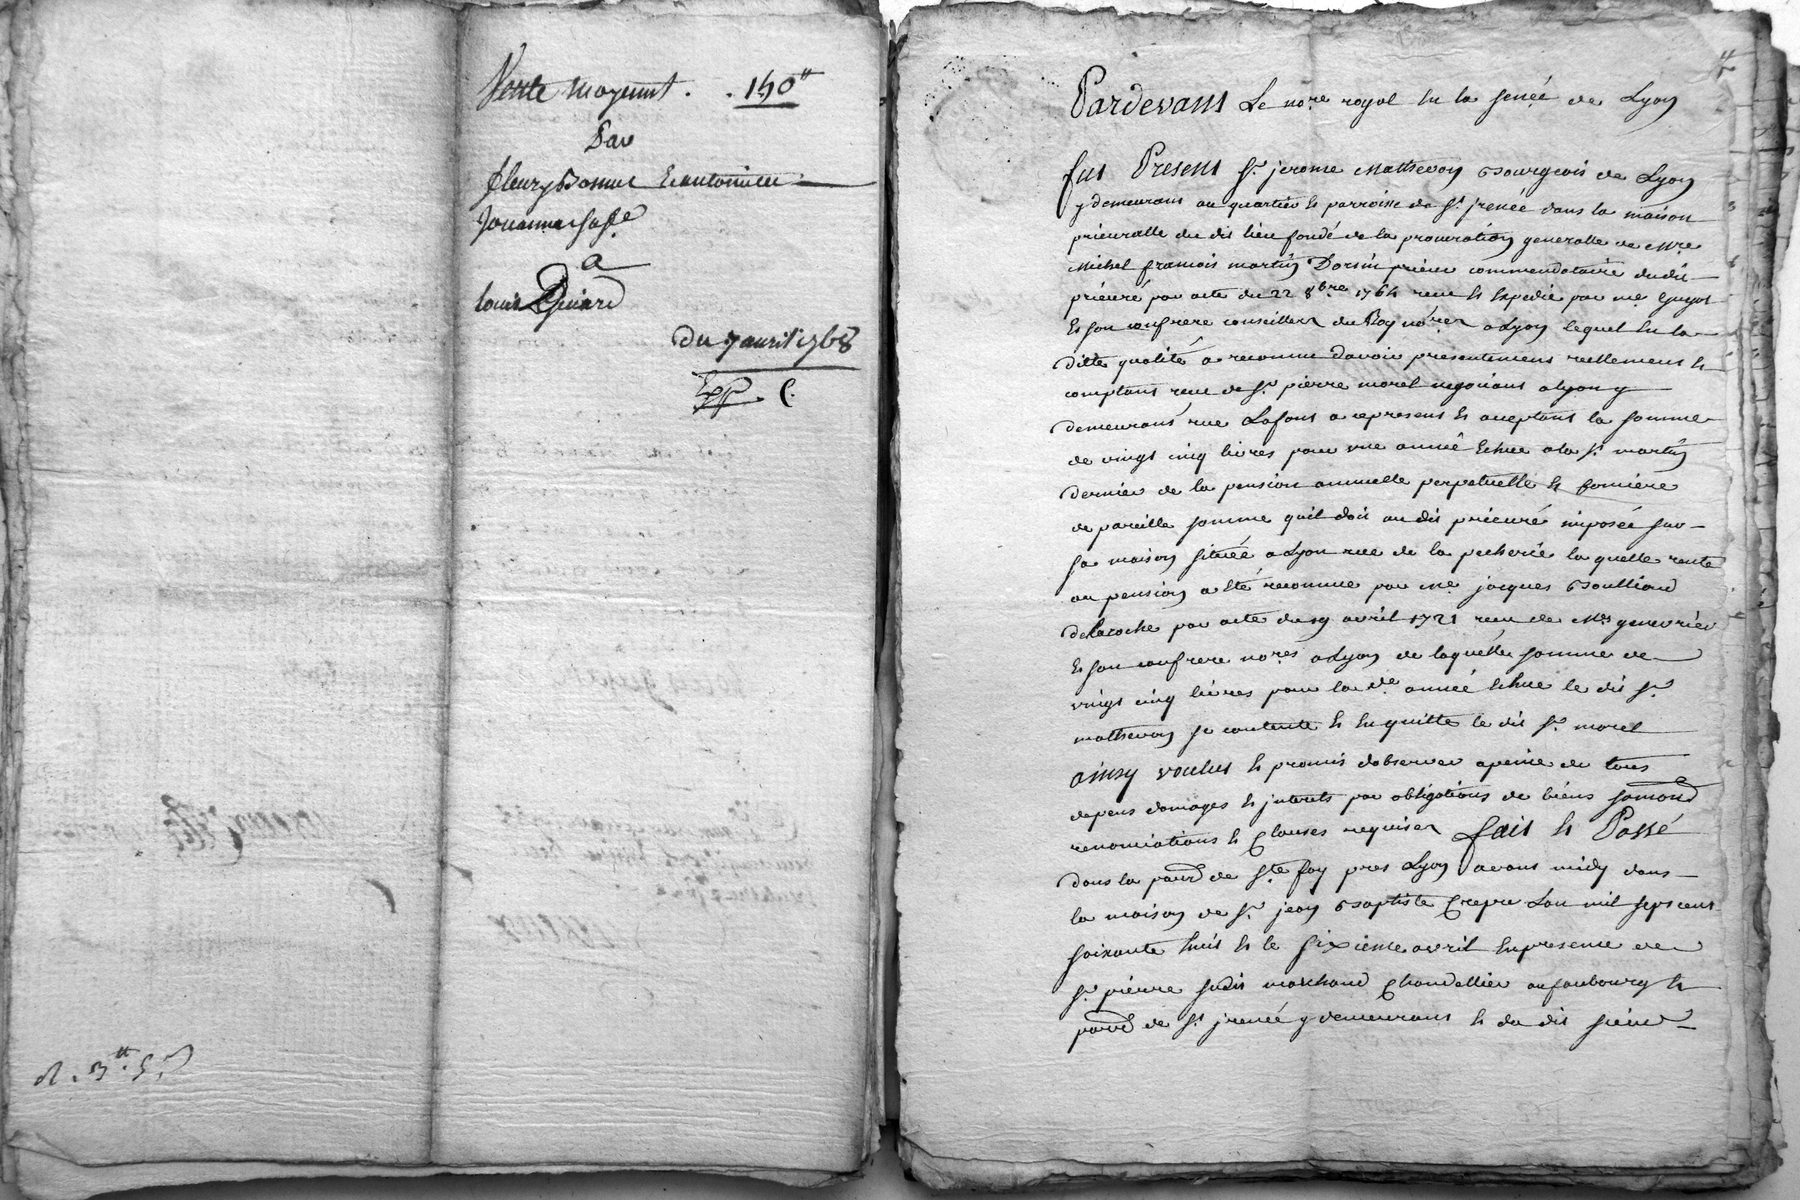 Vente moyennt . . 140"
Par
fleury Bonnet Et antoinette
Jouanna sa fe
a
louis Guiard
du 7 avril 1768
Exp. C.
Pardevant Le nore royal En la senée de Lyon
fut Present Sr. jerome Mathevon Bourgeois de Lyon
y demeurant au quartier Et parroisse de St. jrenée dans la maison
prieuralle du dit lieu fondé de la procuration generalle de Mre
Michel francois martin Dorsin prieur commendataire dudit
prieuré par acte du 22 8bre 1764 receu Et Expedié par me Guyot
Et son confrere conseillers du Roy nores a Lyon lequel En la
ditte qualité a reconnu davoir presentement reellement Et
comptant receu de Sr. pierre morel negotiant a lyon y
demeurant rue Lafont a ce present Et aceptant la somme
de vingt cinq livres pour une année Echue a la St. martin
dernier de la pension annuelle perpetuelle Et fonciere
de pareille somme quil doit au dit prieuré imposée sur
sa maison située a Lyon rue de la pecherie la quelle rente
ou pension a Eté reconnue par me. jacques Boullioud
delaroche par acte du 19 avril 1721 receu de Mrs genevrier
Et son confrere nores a Lyon de laquelle somme de
vingt cinq livres pour lade année Echue le dit Sr.
mathevon se contente Et En quitte le dit Sr. morel
ainsy voulut Et promis dobserver a peine de tous
depens domages Et jnterets par obligations de biens
renonciations Et Clauses requises fait Et Passé
dans la paroisse de Ste foy pres Lyon avant midy dans
la maison de Sr. jean Baptiste Crepu Lan mil sept cent
soixante huit Et le sixieme avril En presence de
Sr. pierre marchand Chandellier au faubourg Et
paroisse de St jrenée y demeurant Et du dit sieur